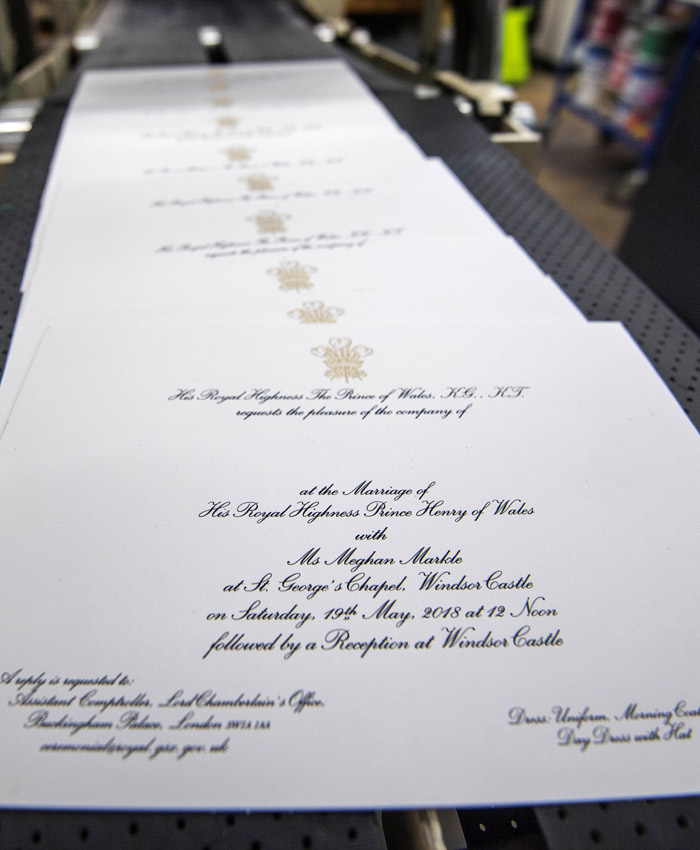 His Royal Highness The Prince of Wales, K.G., K.T.
requests the pleasure of the company of
His Royal Highness The Prince of Wales, K.G., K.T.
requests the pleasure of the company of
at the Marriage of
His Royal Highness Prince Henry of Wales
with
Ms Meghan Markle
at St. George's Chapel, Windsor Castle
on Saturday, 19th May, 2018 at 12 Noon
followed by a Reception at Windsor Castle
A reply is requested to:
Assistant Comptroller, Lord Chamberlain's Office,
Buckingham Palace, London SW1A 1AA
ceremonial@royal.gsx.gov.uk
Dress: Uniform, Morning Coat
Day Dress with Hat